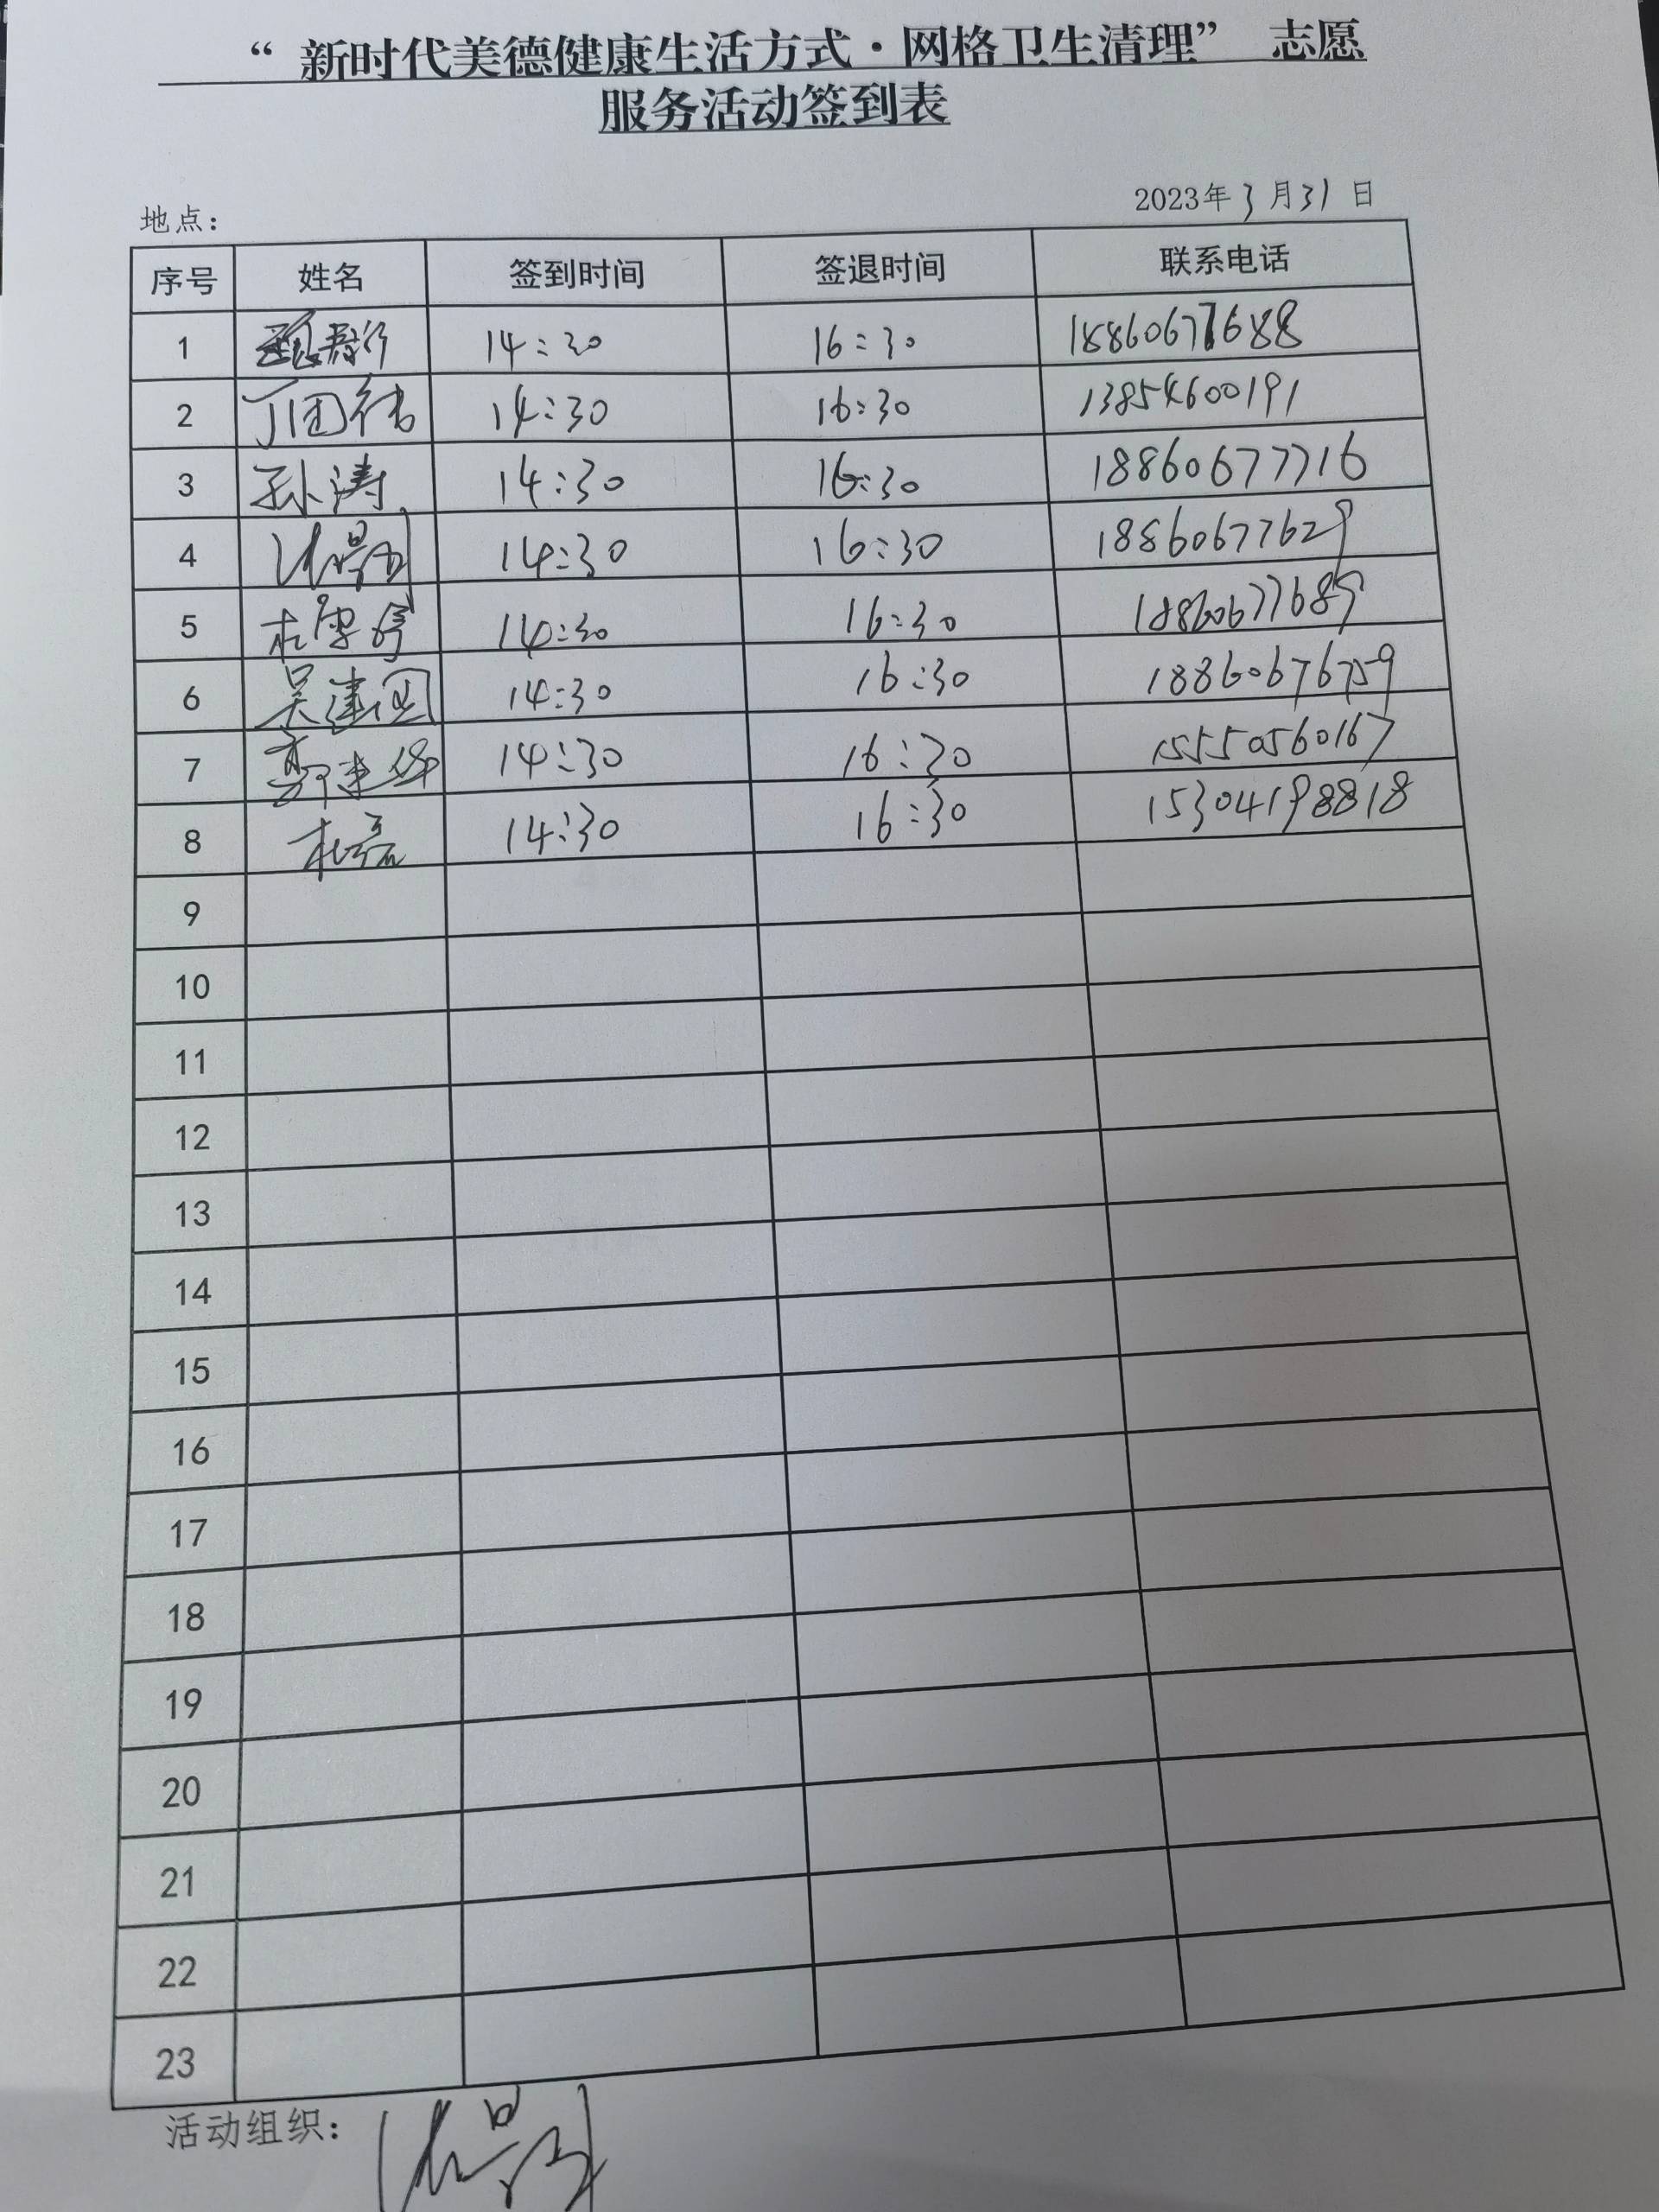 “ 新时代美德健康生活方式·网格卫生清理” 志愿
服务活动签到表
2023年3月31日
地点：
序号 姓名 签到时间 签退时间 联系电话
1 14:30 16:30 18860677688
2 丁团伟 14:30 16:30 13854600191
3 孙涛 14:30 16:30 18860677716
4 14:30 16:30 18860677629
5 杜雪婷 14:30 16:30 18860677689
6 吴建国 14:30 16:30 18860676759
7 郭建华 14:30 16:30 15550560167
8 杜磊 14:30 16:30 15304198818
9
10
11
12
13
14
15
16
17
18
19
20
21
22
23
活动组织：